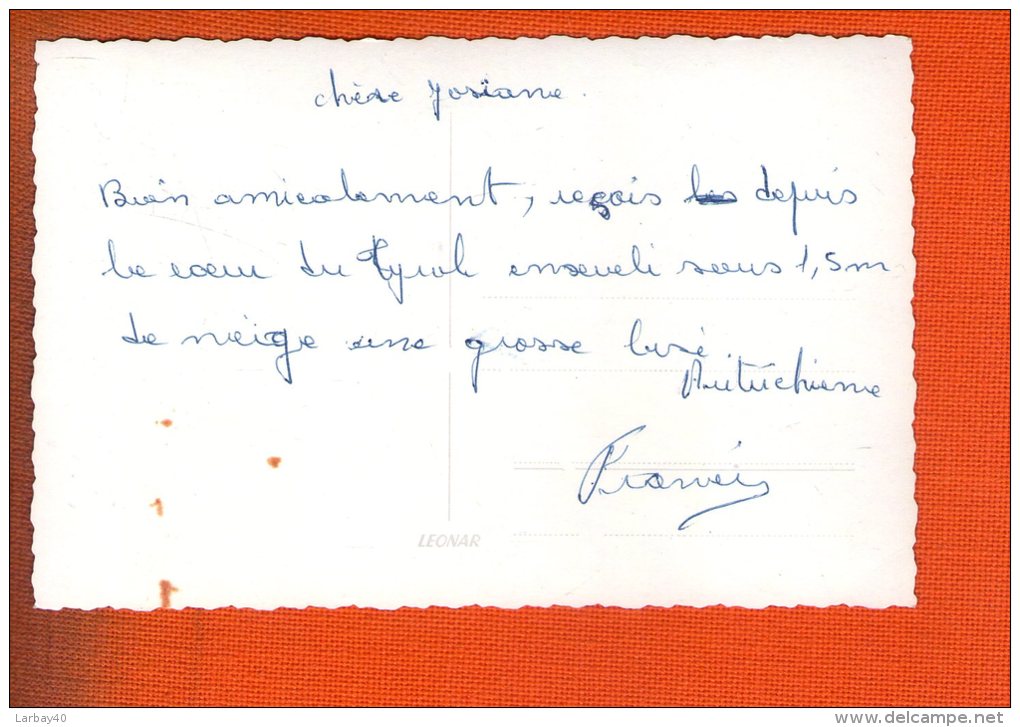 chère Josïane.
Bien amicalement, reçois depuis
le coeur du Tyrol enseveli sous 1,5m
de neige une grosse bise
Autrichienne
Francis
LEONAR
Larbay40
www.delcampe.net